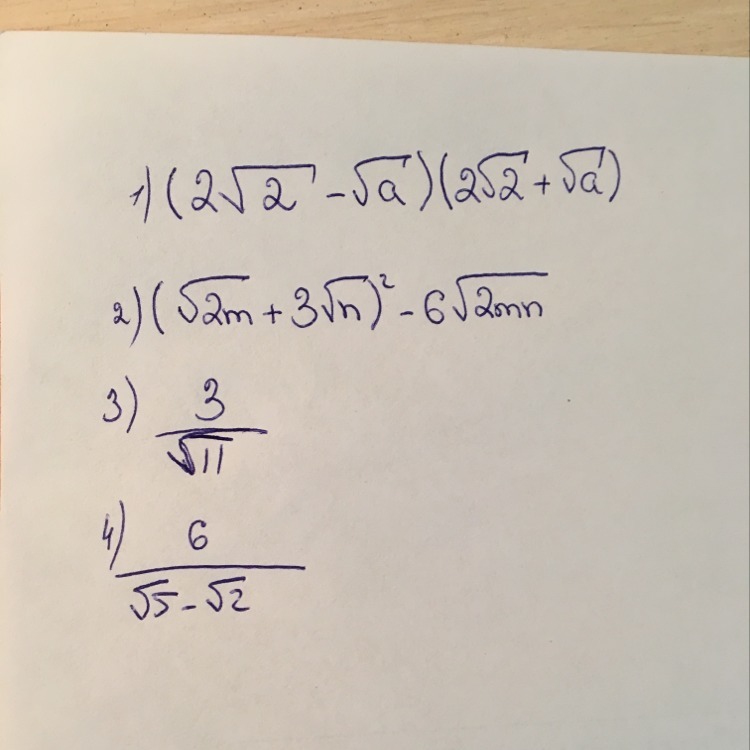 1) (2√2 - √a)(2√2 + √a)
2) (√2m + 3√n)² - 6√2mn
3) 3/√11
4) 6/(√5 - √2)